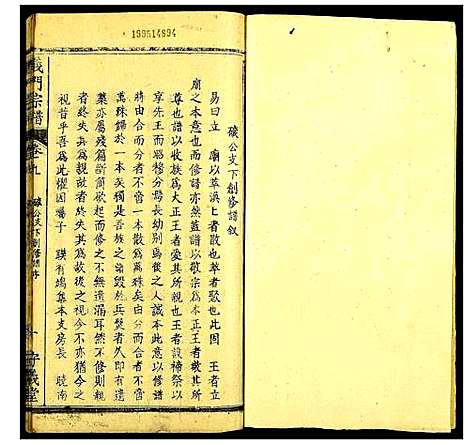 199514894
礦公支下創修譜叙
易曰立　廟以萃渙上者散也萃者聚也此因　王者立
廟之本意也而修譜亦然蓋譜以敬宗爲本正王者敬其所
尊也譜以收族爲大正王者愛其所親也王者設禘祭以
享先王而昭穆分焉長幼别焉王之人誠本此意以修譜
將由合而分者不啻一本散爲萬殊矣由分而合者不啻
萬殊歸於一本矣獨是吾族之譜毁於兵燹者久即有遺
藁亦屬殘篇斷簡欲起而修之不無遺漏耳然不修則親
者終失其爲親故者終失其爲故後之視今不亦猶今之
視昔乎吾爲此懼因囑子　瑛有鳩集本支房長　曉南
義門宗譜
卷之九
礦公支下創修譜序
一
守義堂